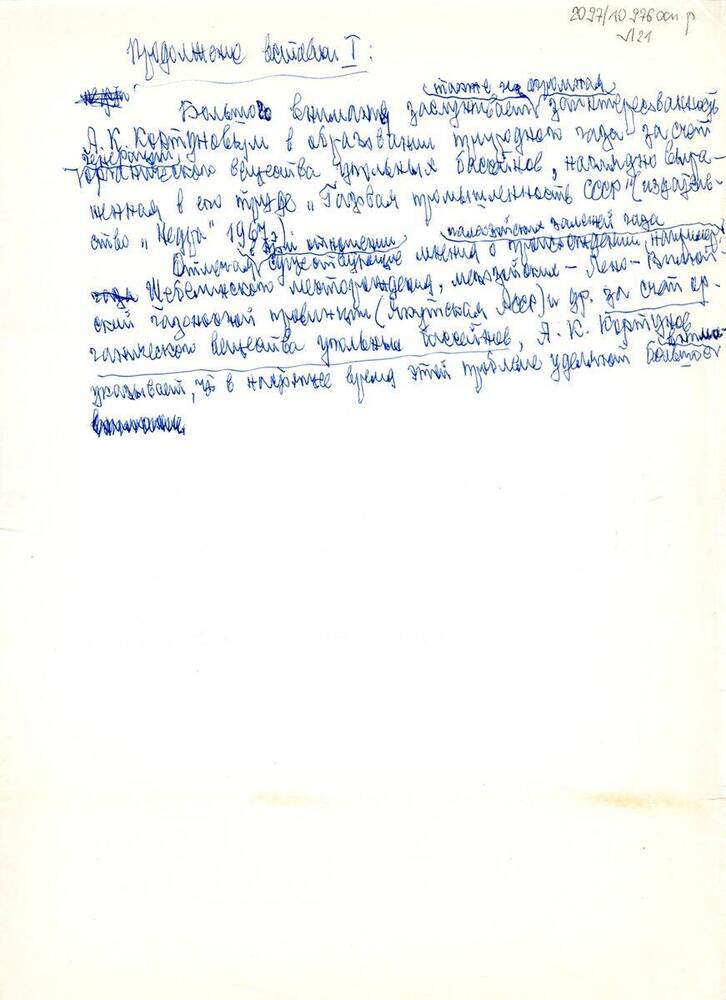 2027/10276 осн р
л 21
Продолжение вставки I:
также и огромная
Большого внимания заслуживает заинтересованность
А. К. Кортуновым в образовании природного газа за счет
генерации
органического вещества угольных бассейнов, наглядно выра-
женная в его труде „Газовая промышленность СССР" (издатель-
ство „Недра" 1967):
этом отношении палеозойских залежей газа
Отмечая существующие мнения о происхождении, например
Шебелинского месторождения, мезозойские – Лено-Вилюй-
ской газоносной провинции (Якутская АССР) и др. за счет ор-
ганического вещества угольных бассейнов, А. К. Кортунов
указывает, что в настоящее время этой проблеме уделяют большое
внимание